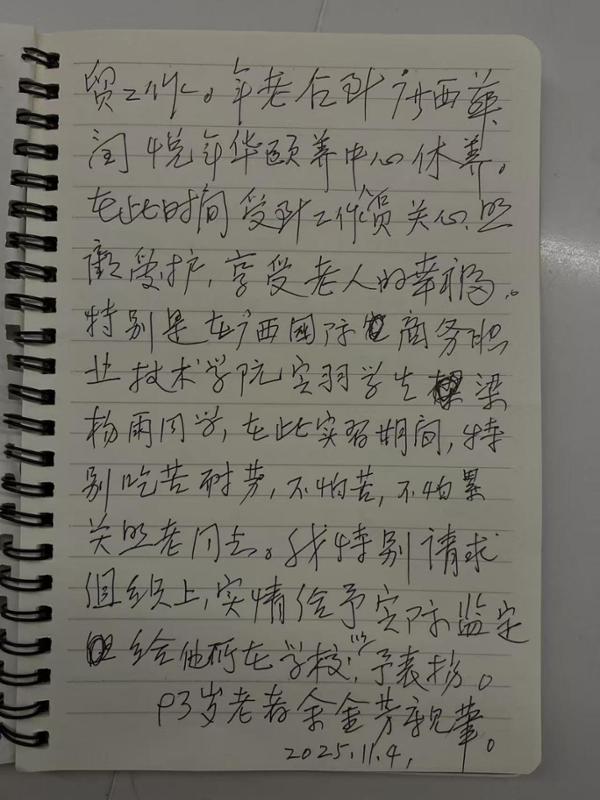 贸工作。年老后到广西华
润悦年华颐养中心休养。
在此时间受到工作员关心照
顾爱护,享受老人的幸福。
特别是在广西国际商务职
业技术学院实习学生梁
杨雨同学,在此实习期间,特
别吃苦耐劳,不怕苦,不怕累
关照老同志。我特别请求
组织上,实情给予实际监定
给他所在学校,以予表扬。
93岁老者余金芳亲笔。
2025.11.4,